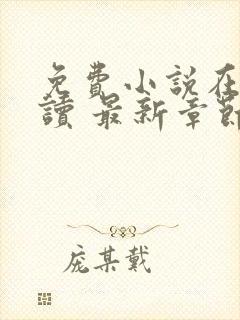 免費小説在
讀 最新章節
庞某戴